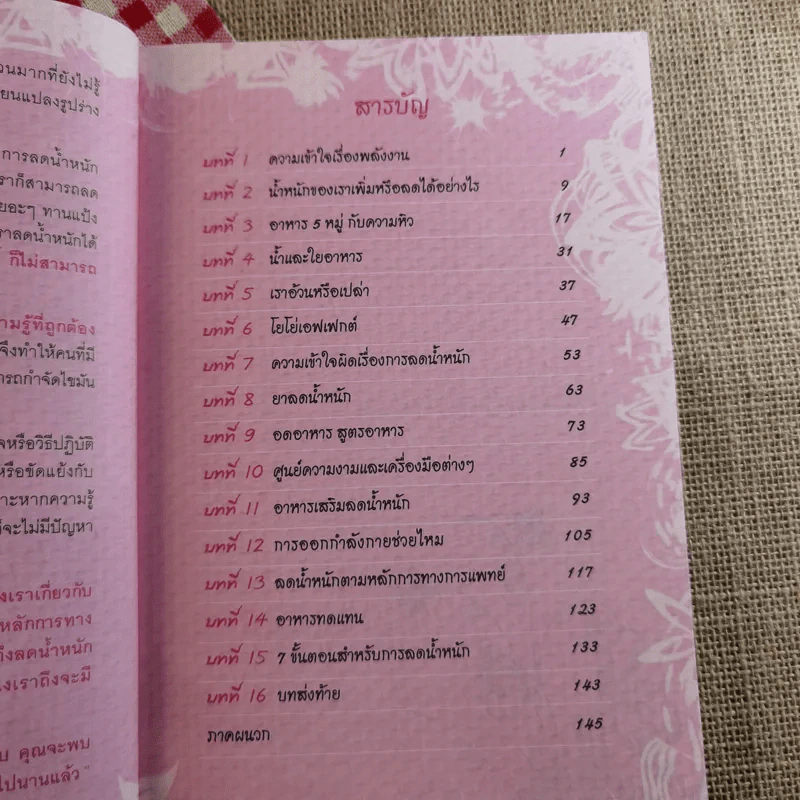 วนมากที่ยังไม่รู้
ยนแปลงรูปร่าง
การลดน้ำหนัก
ราก็สามารถลด
ยอะๆ ทานแป้ง
ราลดน้ำหนักได้
ก็ไม่สามารถ
ามรู้ที่ถูกต้อง
จึงทำให้คนที่มี
ารถกำจัดไขมัน
จหรือวิธีปฏิบัติ
หรือขัดแย้งกับ
าะหากความรู้
ก็จะไม่มีปัญหา
งเราเกี่ยวกับ
หลักการทาง
ถึงลดน้ำหนัก
งเราถึงจะมี
บ คุณจะพบ
ไปนานแล้ว"
สารบัญ
บทที่ 1 ความเข้าใจเรื่องพลังงาน 1
บทที่ 2 น้ำหนักของเราเพิ่มหรือลดได้อย่างไร 9
บทที่ 3 อาหาร 5 หมู่ กับความหิว 17
บทที่ 4 น้ำและใยอาหาร 31
บทที่ 5 เราอ้วนหรือเปล่า 37
บทที่ 6 โยโย่เอฟเฟกต์ 47
บทที่ 7 ความเข้าใจผิดเรื่องการลดน้ำหนัก 53
บทที่ 8 ยาลดน้ำหนัก 63
บทที่ 9 อดอาหาร สูตรอาหาร 73
บทที่ 10 ศูนย์ความงามและเครื่องมือต่างๆ 85
บทที่ 11 อาหารเสริมลดน้ำหนัก 93
บทที่ 12 การออกกำลังกายช่วยไหม 105
บทที่ 13 ลดน้ำหนักตามหลักการทางการแพทย์ 117
บทที่ 14 อาหารทดแทน 123
บทที่ 15 7 ขั้นตอนสำหรับการลดน้ำหนัก 133
บทที่ 16 บทส่งท้าย 143
ภาคผนวก 145